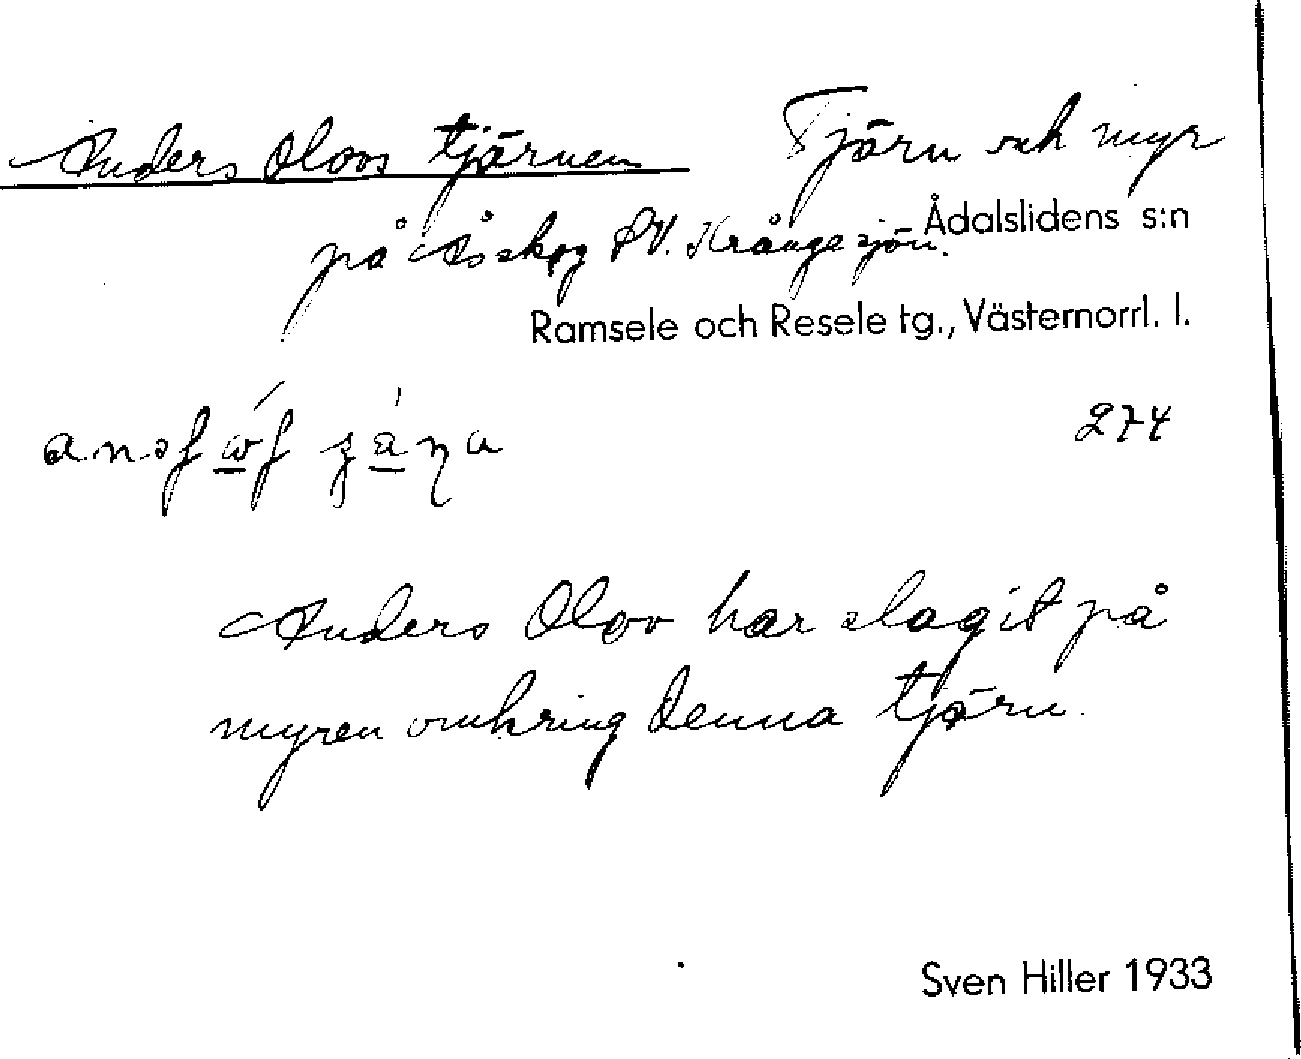 Anders Olovs tjärnen Tjärn och myr
på Åsskog SV. Krångesjön.
Ådalslidens s:n
Ramsele och Resele tg., Västernorrl. l.
274
Anders Olov har slagit på
myren omkring denna tjärn.
Sven Hiller 1933